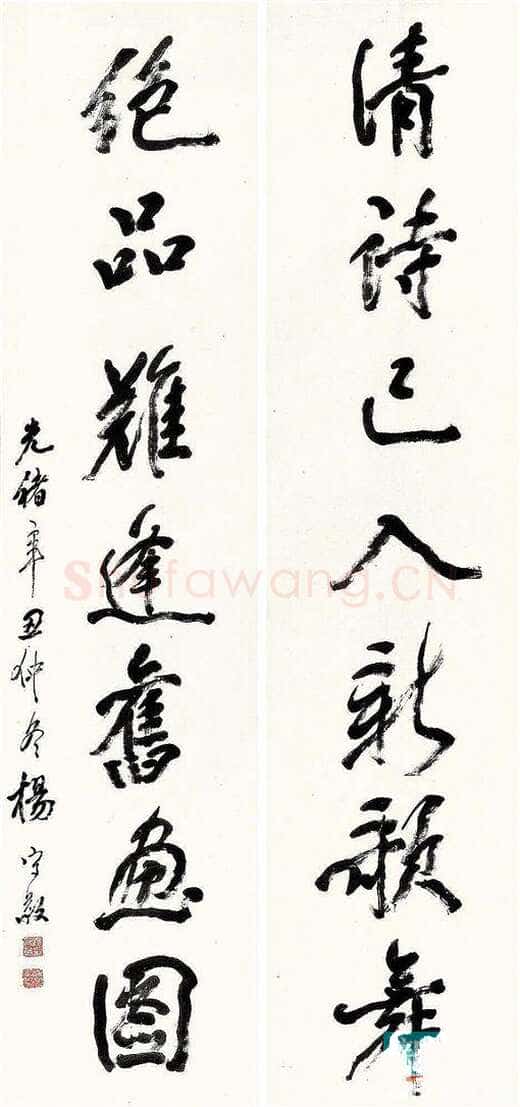 清詩已入新歌舞
絕品難逢舊畫圖
光緒辛丑仲冬楊守敬
Shufawang.CN